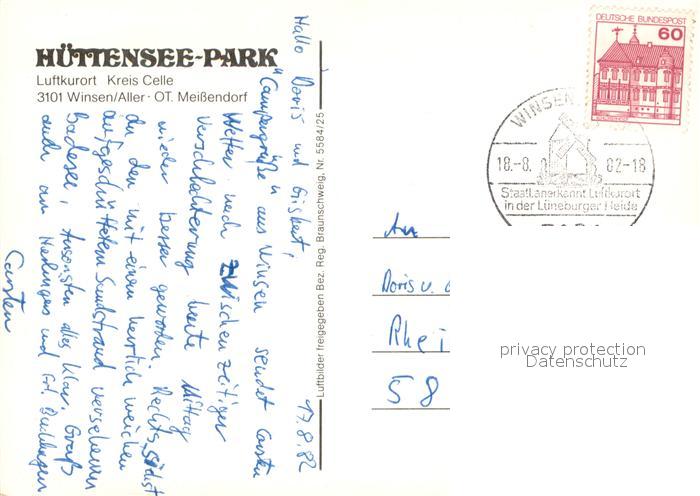 HÜTTENSEE-PARK
Luftkurort Kreis Celle
3101 Winsen/Aller · OT. Meißendorf
Hallo Doris und Gisbert,
"Campergrüße" aus Winsen sendet Carsten
Wetter nach zwischenzeitiger
Verschlechterung heute Mittag
wieder besser geworden. Rechts, ist
der mit einem herrlich weichen
aufgeschüttetem Sandstrand versehenen
Badesee, Ansonsten alles klar. Gruß
auch an und
Carsten
17.8.82
Luftbilder freigegeben Bez. Reg. Braunschweig, Nr. 5584/25
DEUTSCHE BUNDESPOST
60
WINSEN
18.-8. 82-18
Staatl. anerkannt Luftkurort
in der Lüneburger Heide
An
Doris u.
Rhei
58
privacy protection
Datenschutz